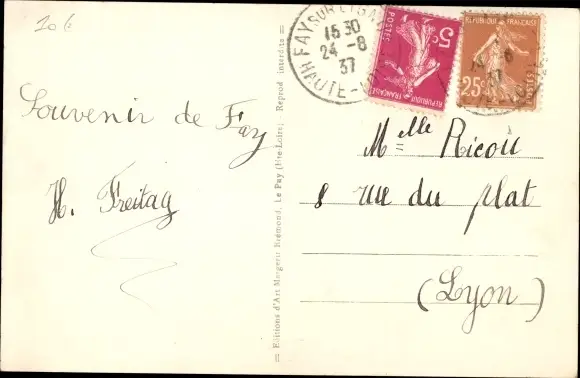 206
Souvenir de Fay
H. Freitag
= Editions d'Art Margerit Brémond, Le Puy (Hte-Loire) - Reprod interdite =
FAY SUR LIGNON
15 30
24 - 8
37
HAUTE-LOIRE
REPUBLIQUE FRANÇAISE
POSTES
5c
REPUBLIQUE FRANÇAISE
25c
POSTES
Melle Ricou
8 rue du plat
(Lyon)